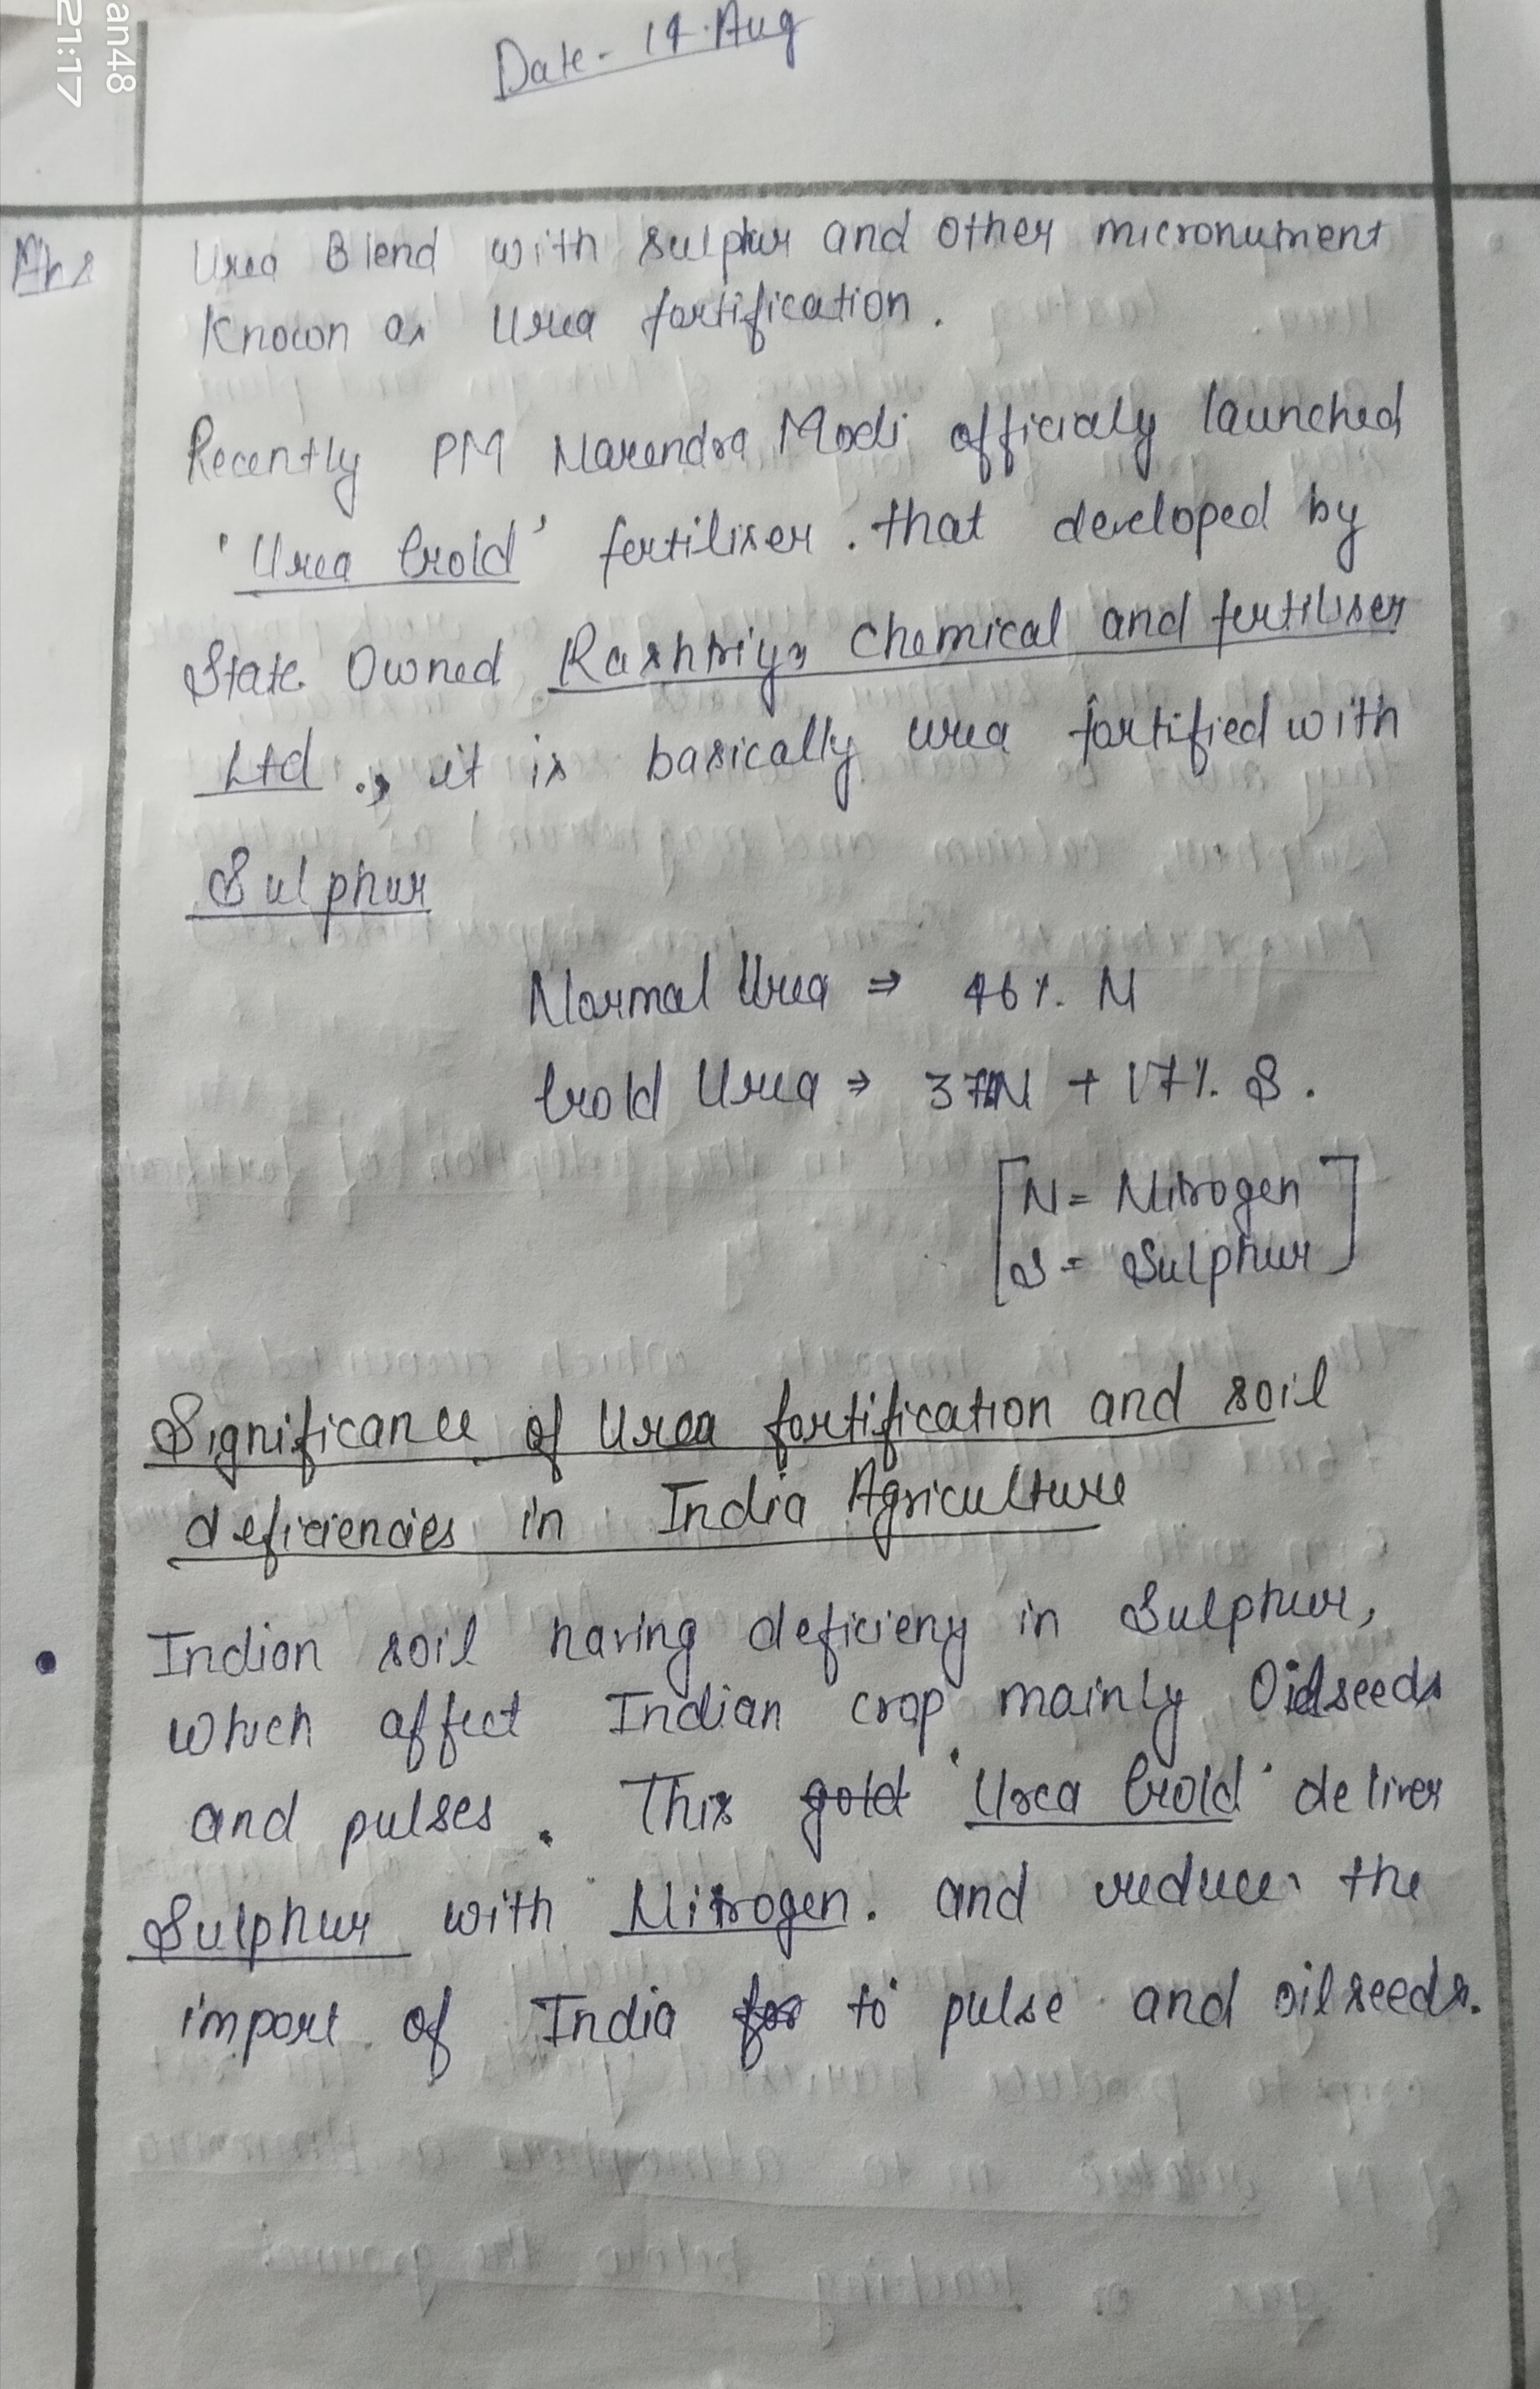 an48
21:17
Date - 14. Aug
Ans
Urea Blend with sulphur and other micronutrient
Known as Urea fortification.
Recently PM Narendra Modi officialy launched
'Urea Gold' fertiliser. that developed by
State Owned Rashtriya Chemical and fertiliser
Ltd., it is basically urea fortified with
Sulphur
Normal Urea ⇒ 46% N
Gold Urea ⇒ 37%N + 17% S.
[N = Nitrogen
S = Sulphur]
Significance of Urea fortification and soil
deficiencies in India Agriculture
• Indian soil having deficieny in Sulphur,
which affect Indian crop mainly Oilseeds
and pulses. This gold 'Urea Gold' deliver
Sulphur with Nitrogen. and reduce the
import of India for to pulse and oilseeds.